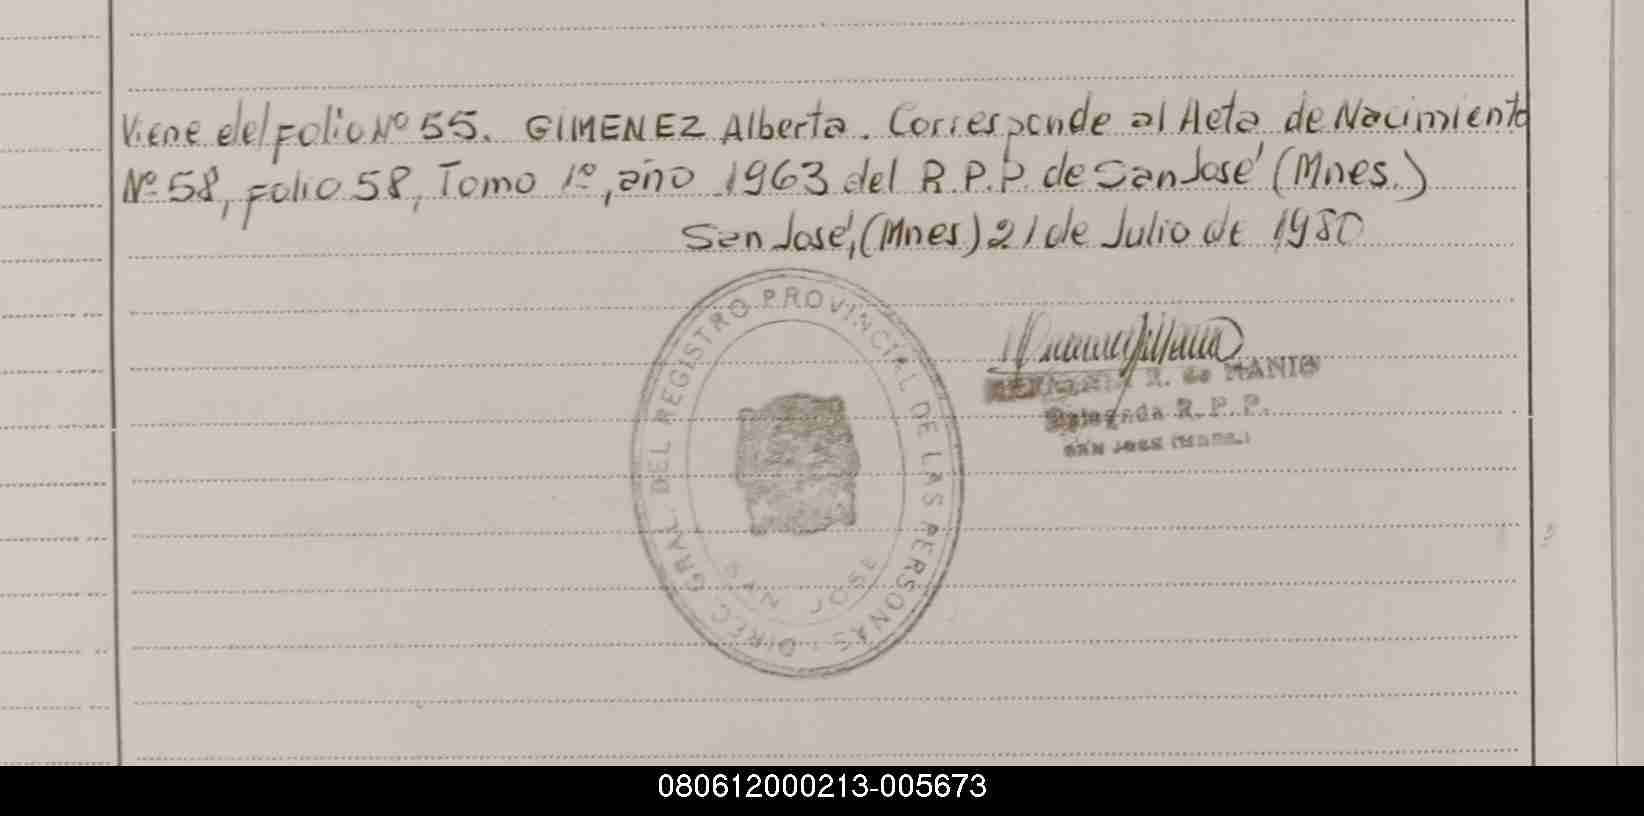 Viene del Folio Nº 55. GIMENEZ Alberta. Corresponde al Acta de Nacimiento
Nº 58, Folio 58, Tomo 1º, año 1963 del R.P.P. de San José (Mnes.)
San José, (Mnes) 21 de Julio de 1980
DIREC. GRAL. DEL REGISTRO PROVINCIAL DE LAS PERSONAS
SAN JOSE
R. de MANIO
Delegada R.P.P.
SAN JOSE (Mnes.)
080612000213-005673